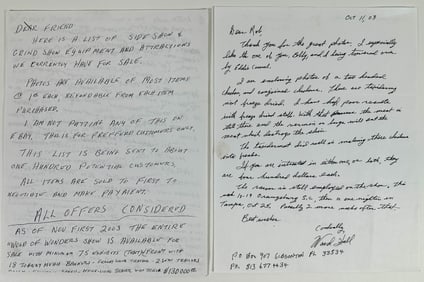 DEAR FRIEND
HERE IS A LIST OF SIDE SHOW &
GRIND SHOW EQUIPMENT AND ATTRACTIONS
WE CURRENTLY HAVE FOR SALE.
PHOTOS ARE AVAILABLE OF MOST ITEMS
@ 1.00 EACH REFUNDABLE FROM EACH ITEM
PURCHASED.
I AM NOT PUTTING ANY OF THIS ON
EBAY. THIS IS FOR PREFERRED CUSTOMERS ONLY.
THIS LIST IS BEING SENT TO ABOUT
ONE HUNDRED POTENTIAL CUSTOMERS.
ALL ITEMS ARE SOLD TO FIRST TO
NEGOTIATE AND MAKE PAYMENT.
ALL OFFERS CONSIDERED
AS OF NOV FIRST 2003 THE ENTIRE
WORLD OF WONDERS SHOW IS AVAILABLE FOR
SALE WITH MINIMUM 75 EXHIBITS
Oct 11, 03
Dear Rob,
Thank you for the great photos. I especially
like the one of you, Bobby, and I being
I am enclosing photos of a two headed
chicken and conjoined chickens. These are taxidermy
not freeze dried. I have had poor results
with freeze dried stuff. With that process the meat is
still there and the vermin or bugs will eat the
meat which destroys the skin.
The taxidermist did well on making these chickens
into freaks.
If you are interested in either one, or both, they
are four hundred dollars each.
The museum is still employed on the show, this
week is in Orangeburg S.C. then in one
Tampa, Oct 28. Possibly 2 more
Best wishes
Cordially
Ward Hall
P O Box 907 GIBSONTON FL 33534
PH. 813 677 4434